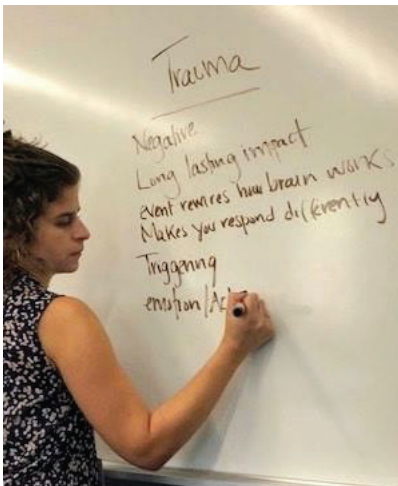 Trauma
Negative
Long lasting impact
event rewires how brain works
Makes you respond differently
Triggering
emotion/Act